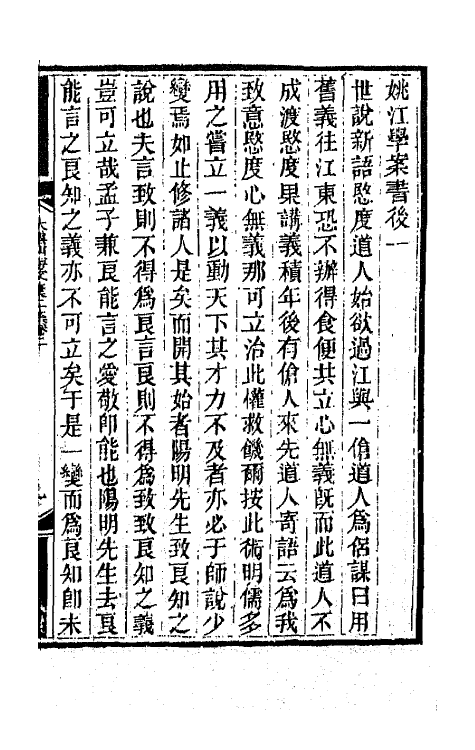 姚江學案書後一
世說新語愍度道人始欲過江與一傖道人爲侶謀曰用
舊義往江東恐不辦得食便共立心無義旣而此道人不
成渡愍度果講義積年後有傖人來先道人寄語云爲我
致意愍度心無義那可立治此權救饑爾按此術明儒多
用之嘗立一義以動天下其才力不及者亦必于師說少
變焉如止修諸人是矣而開其始者陽明先生致良知之
說也夫言致則不得爲良言良則不得爲致致良知之義
豈可立哉孟子兼良能言之愛敬卽能也陽明先生去良
能言之良知之義亦不可立矣于是一變而爲良知卽未